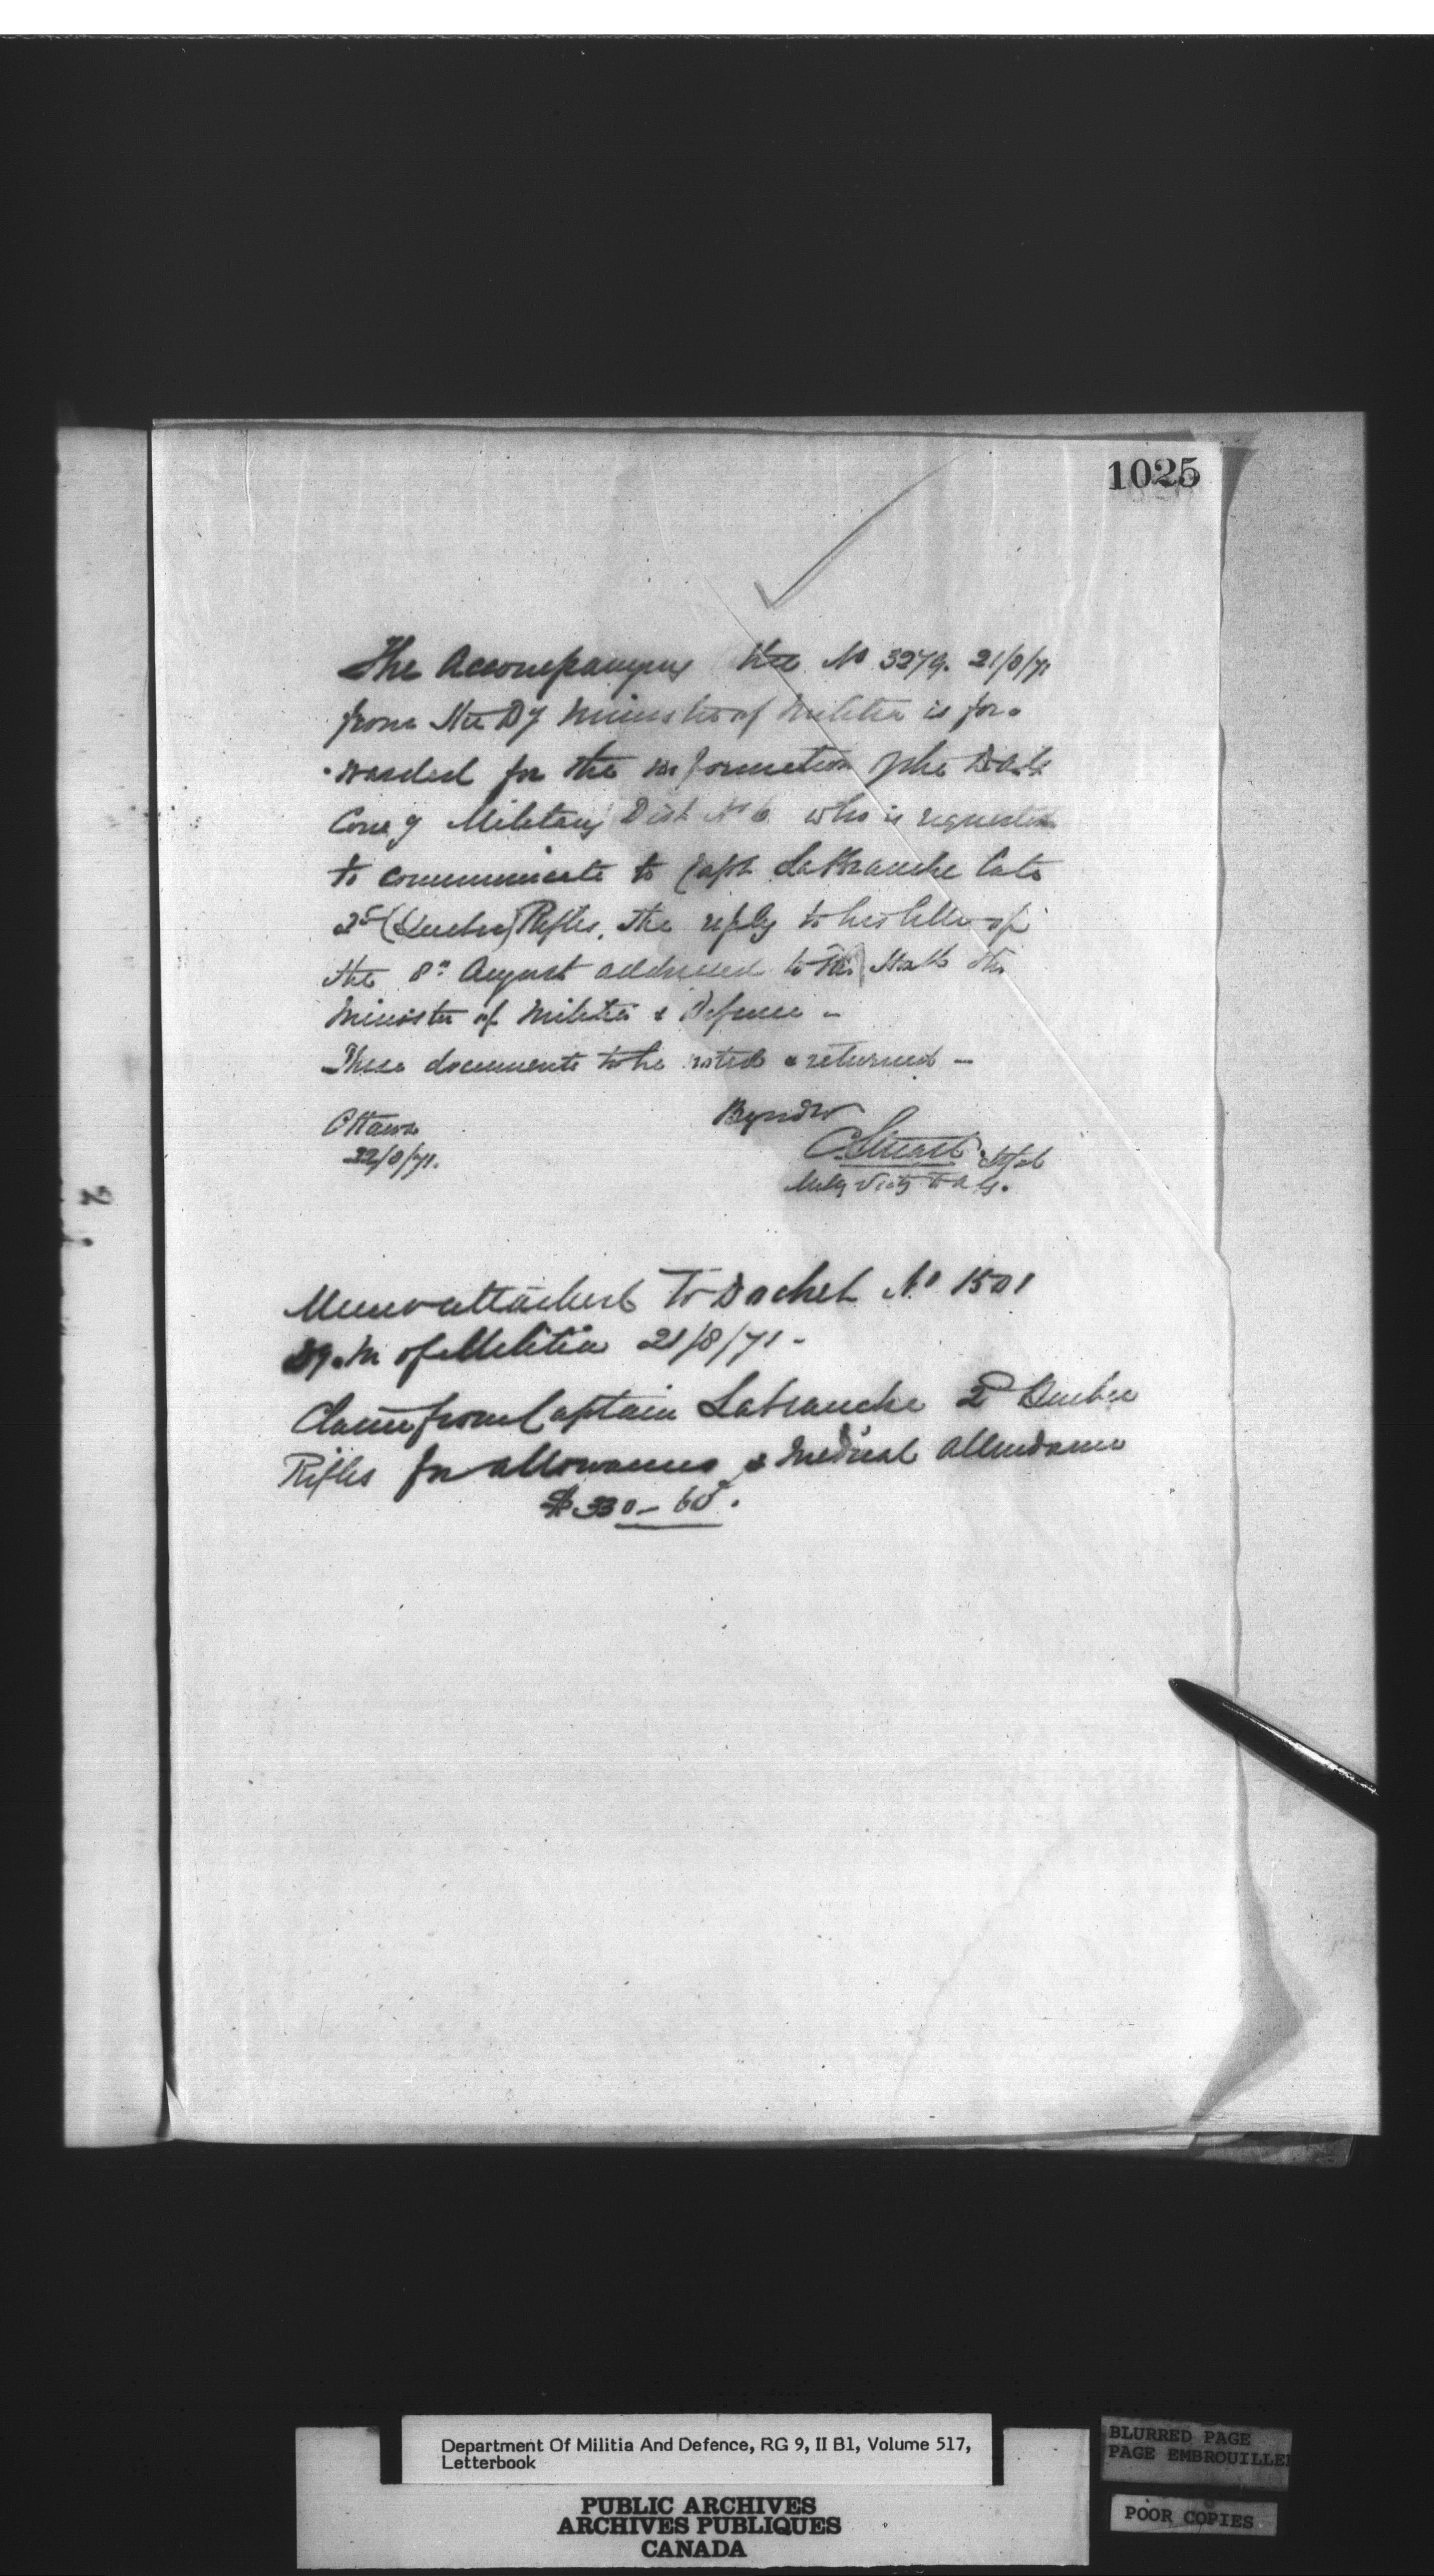 1025
The Accompanying No 3279. 21/8/71
from the Dy Minister of Militia is for-
-warded for the information of the DAG
Comg Military Dist No 6 who is requested
to communicate to Capt LaBranche late
2d (Quebec) Rifles, the reply to his letter of
the 8th August addressed to the the
Minister of Militia & Defence -
These documents to be noted & returned -
Ottawa
22/8/71.
By order
C. Stuart
Memo attached To Docket No 1501
Dy. M of Militia 21/8/71 -
Claim from Captain Labranche 2d Quebec
Rifles for allowances & Medical Attendance
$330-65.
Department Of Militia And Defence, RG 9, II B1, Volume 517,
Letterbook
PUBLIC ARCHIVES
ARCHIVES PUBLIQUES
CANADA
BLURRED PAGE
PAGE EMBROUILLE
POOR COPIES